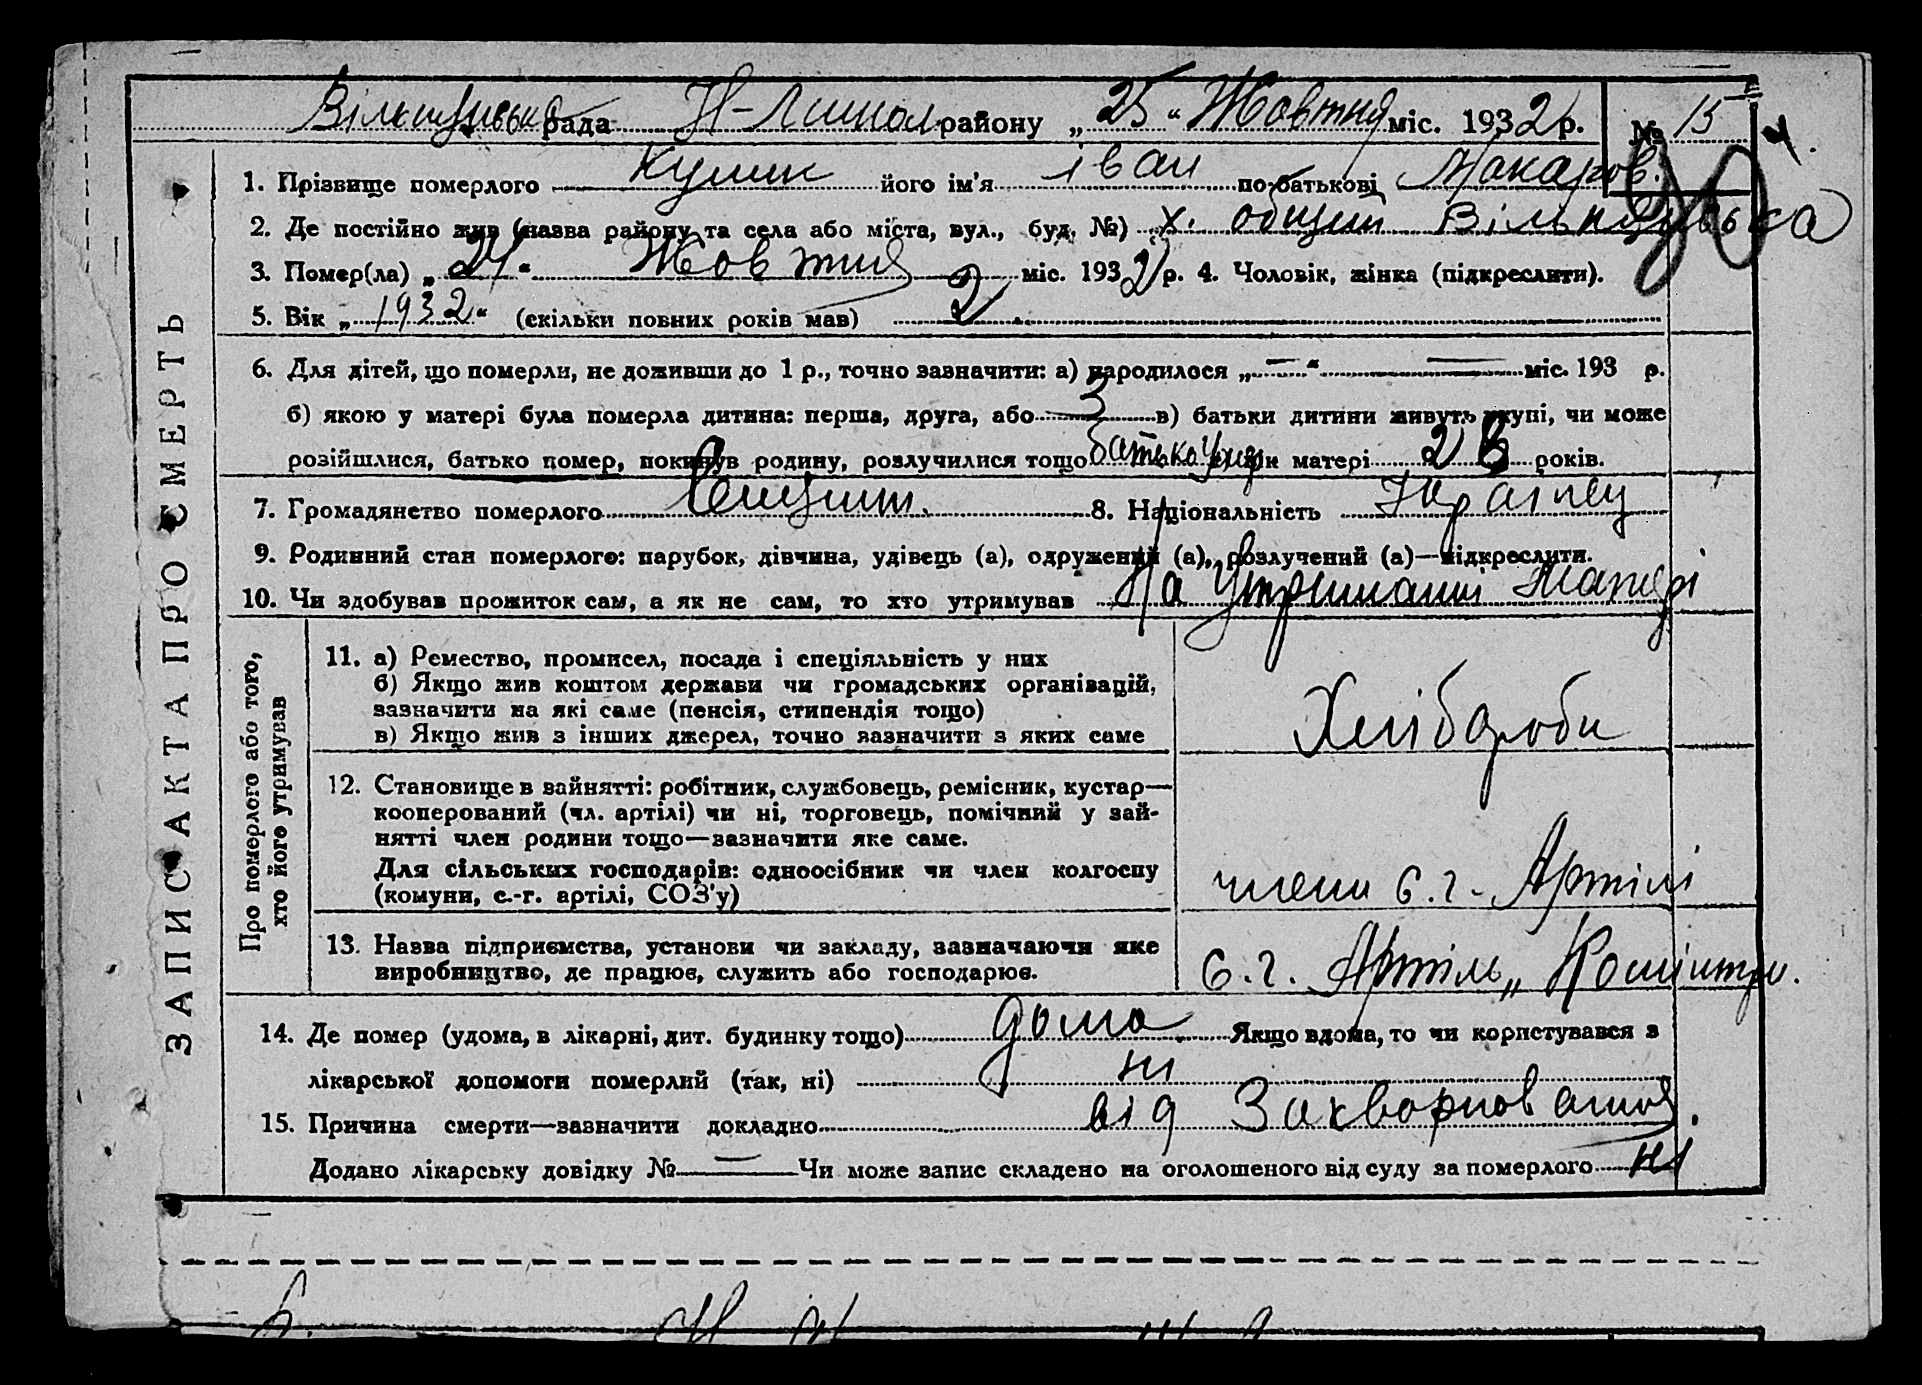 рада Н-Липол району „ 25 “ Жовтня міс. 1932 р. № 15
1. Прізвище померлого Кулик його ім'я іван по-батькові Макаров.
2. Де постійно жив (назва району та села або міста, вул., буд. №) х.
3. Помер(ла) „ 24 “ Жовтня міс. 1932 р. 4. Чоловік, жінка (підкреслити).
5. Вік „ 1932 “ (скільки повних років мав) 2
6. Для дітей, що померли, не доживши до 1 р., точно зазначити: а) народилося „ — “ — міс. 193 р.
б) якою у матері була померла дитина: перша, друга, або 3 в) батьки дитини живуть укупі, чи може
розійшлися, батько помер, покинув родину, розлучилися тощо батько матері 28 років.
7. Громадянство померлого 8. Національність Украінец
9. Родинний стан померлого: парубок, дівчина, удівець (а), одружений (а), розлучений (а)—підкреслити.
10. Чи здобував прожиток сам, а як не сам, то хто утримував На утриманні Матері
ЗАПИС АКТА ПРО СМЕРТЬ
Про померлого або того,
хто його утримував
11. а) Ремество, промисел, посада і спеціяльність у них
б) Якщо жив коштом держави чи громадських організацій,
зазначити на які саме (пенсія, стипендія тощо)
в) Якщо жив з інших джерел, точно зазначити з яких саме
Хлібороби
12. Становище в зайнятті: робітник, службовець, ремісник, кустар—
кооперований (чл. артілі) чи ні, торговець, помічний у зай-
нятті член родини тощо—зазначити яке саме.
Для сільських господарів: одноосібник чи член колгоспу
(комуни, с.-г. артілі, СОЗ'у)
члени с.г. Артілі
13. Назва підприємства, установи чи закладу, зазначаючи яке
виробництво, де працює, служить або господарює.
с.г. Артіль „ Комінтрн.
14. Де помер (удома, в лікарні, дит. будинку тощо) дома Якщо вдома, то чи користувався з
лікарської допомоги померлий (так, ні) ні
15. Причина смерти—зазначити докладно від Захворювання.
Додано лікарську довідку № — Чи може запис складено на оголошеного від суду за померлого ні